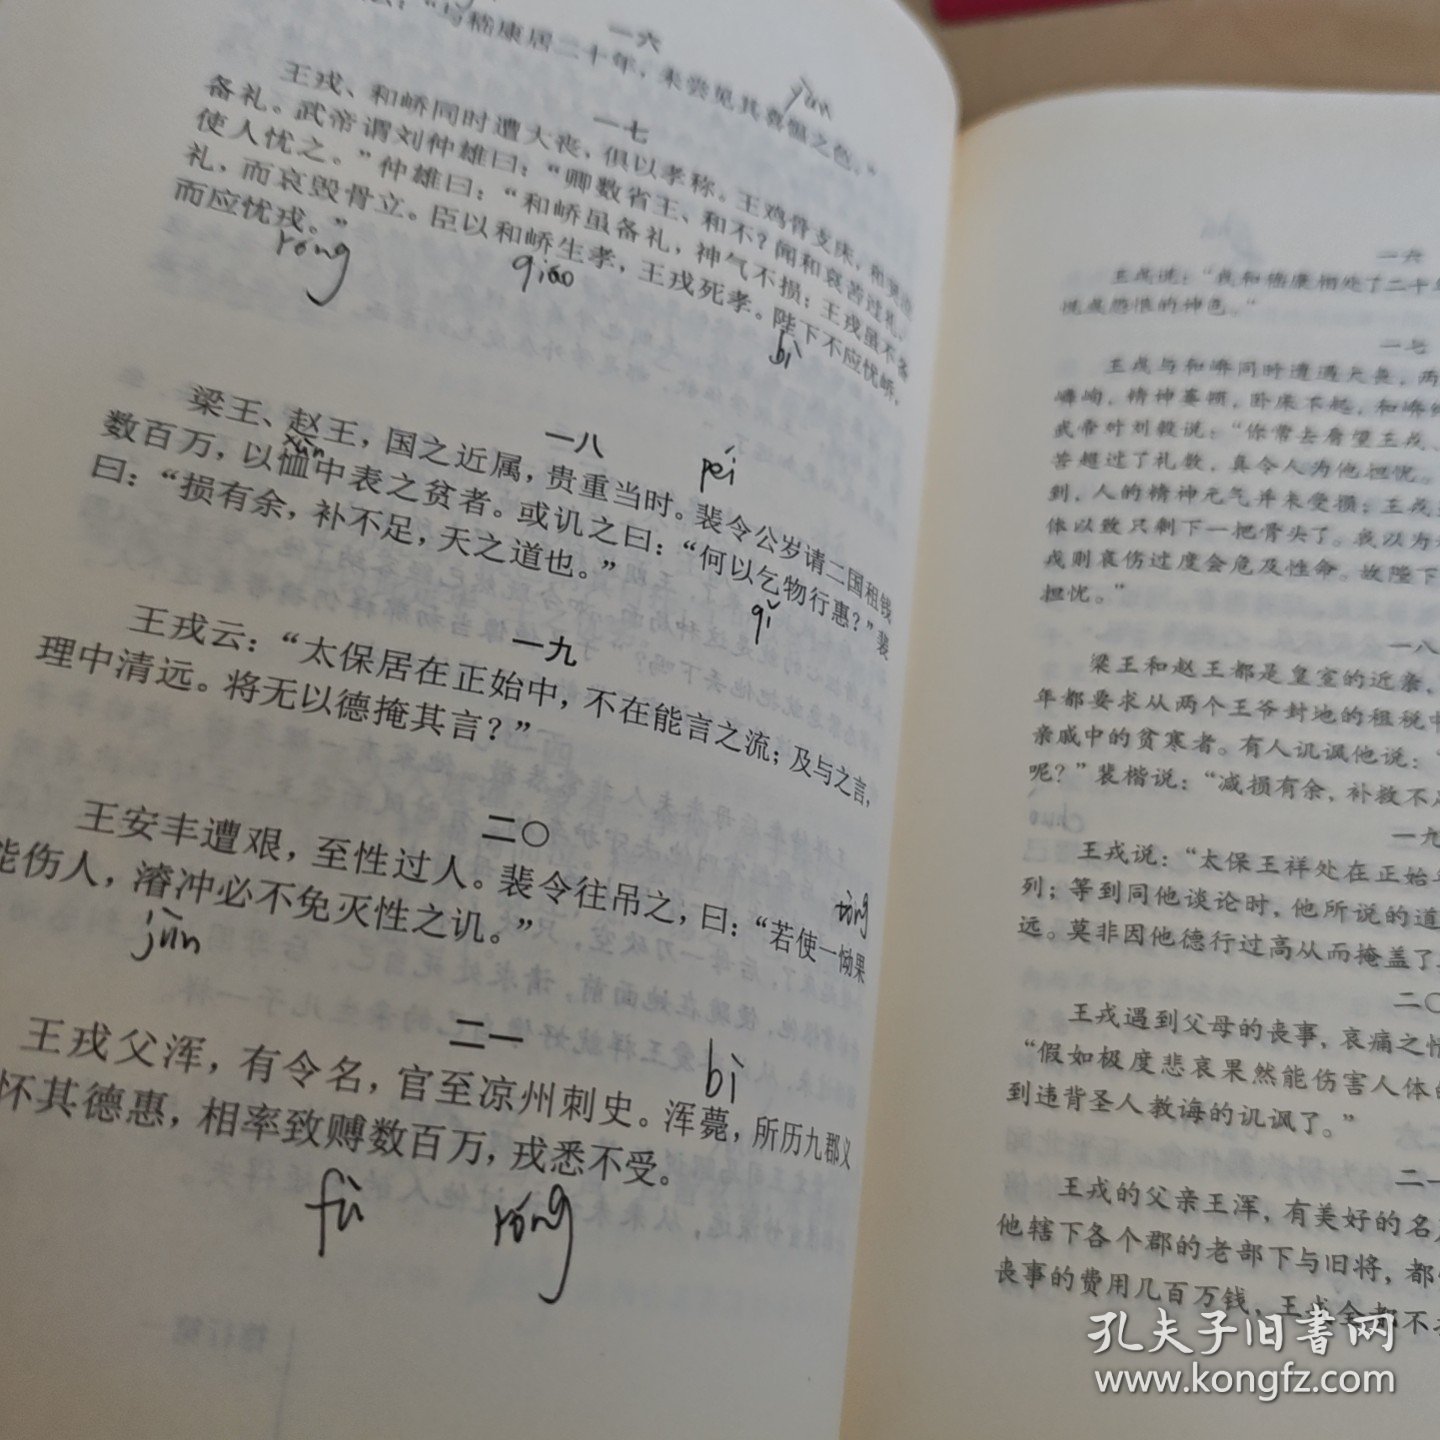 一六
云：“与嵇康居二十年，未尝见其喜愠之色。”
yùn
一七
王戎、和峤同时遭大丧，俱以孝称。王鸡骨支床，和哭泣
备礼。武帝谓刘仲雄曰：“卿数省王、和不？闻和哀苦过礼，
使人忧之。”仲雄曰：“和峤虽备礼，神气不损；王戎虽不备
礼，而哀毁骨立。臣以和峤生孝，王戎死孝。陛下不应忧峤，
而应忧戎。”
róng
qiáo
bì
一八
梁王、赵王，国之近属，贵重当时。裴令公岁请二国租钱
péi
xùn
数百万，以恤中表之贫者。或讥之曰：“何以乞物行惠？”裴
曰：“损有余，补不足，天之道也。”
qǐ
一九
王戎云：“太保居在正始中，不在能言之流；及与之言，
理中清远。将无以德掩其言？”
二〇
王安丰遭艰，至性过人。裴令往吊之，曰：“若使一恸果
tòng
能伤人，濬冲必不免灭性之讥。”
jùn
二一
bì
王戎父浑，有令名，官至凉州刺史。浑薨，所历九郡义
怀其德惠，相率致赙数百万，戎悉不受。
fù
róng
一六
王戎说：“我和嵇康相处了二十
悦或恼恨的神色。”
一七
王戎与和峤同时遭遇大丧，两
嶙峋，精神萎顿，卧床不起，和峤
武帝对刘毅说：“你常去看望王戎、
苦超过了礼数，真令人为他担忧。
到，人的精神元气并未受损；王戎
体以致只剩下一把骨头了。我以为
戎则哀伤过度会危及性命。故陛下
担忧。”
一八
梁王和赵王都是皇室的近亲，
年都要求从两个王爷封地的租税中
亲戚中的贫寒者。有人讥讽他说：“
呢？”裴楷说：“减损有余，补救不
chuò
一九
王戎说：“太保王祥处在正始
列；等到同他谈论时，他所说的道
远。莫非因他德行过高从而掩盖了
二〇
王戎遇到父母的丧事，哀痛之情
“假如极度悲哀果然能伤害人体的
到违背圣人教诲的讥讽了。”
二一
王戎的父亲王浑，有美好的名
他辖下各个郡的老部下与旧将，都
丧事的费用几百万钱，王戎全都不
孔夫子旧书网
www.kongfz.com